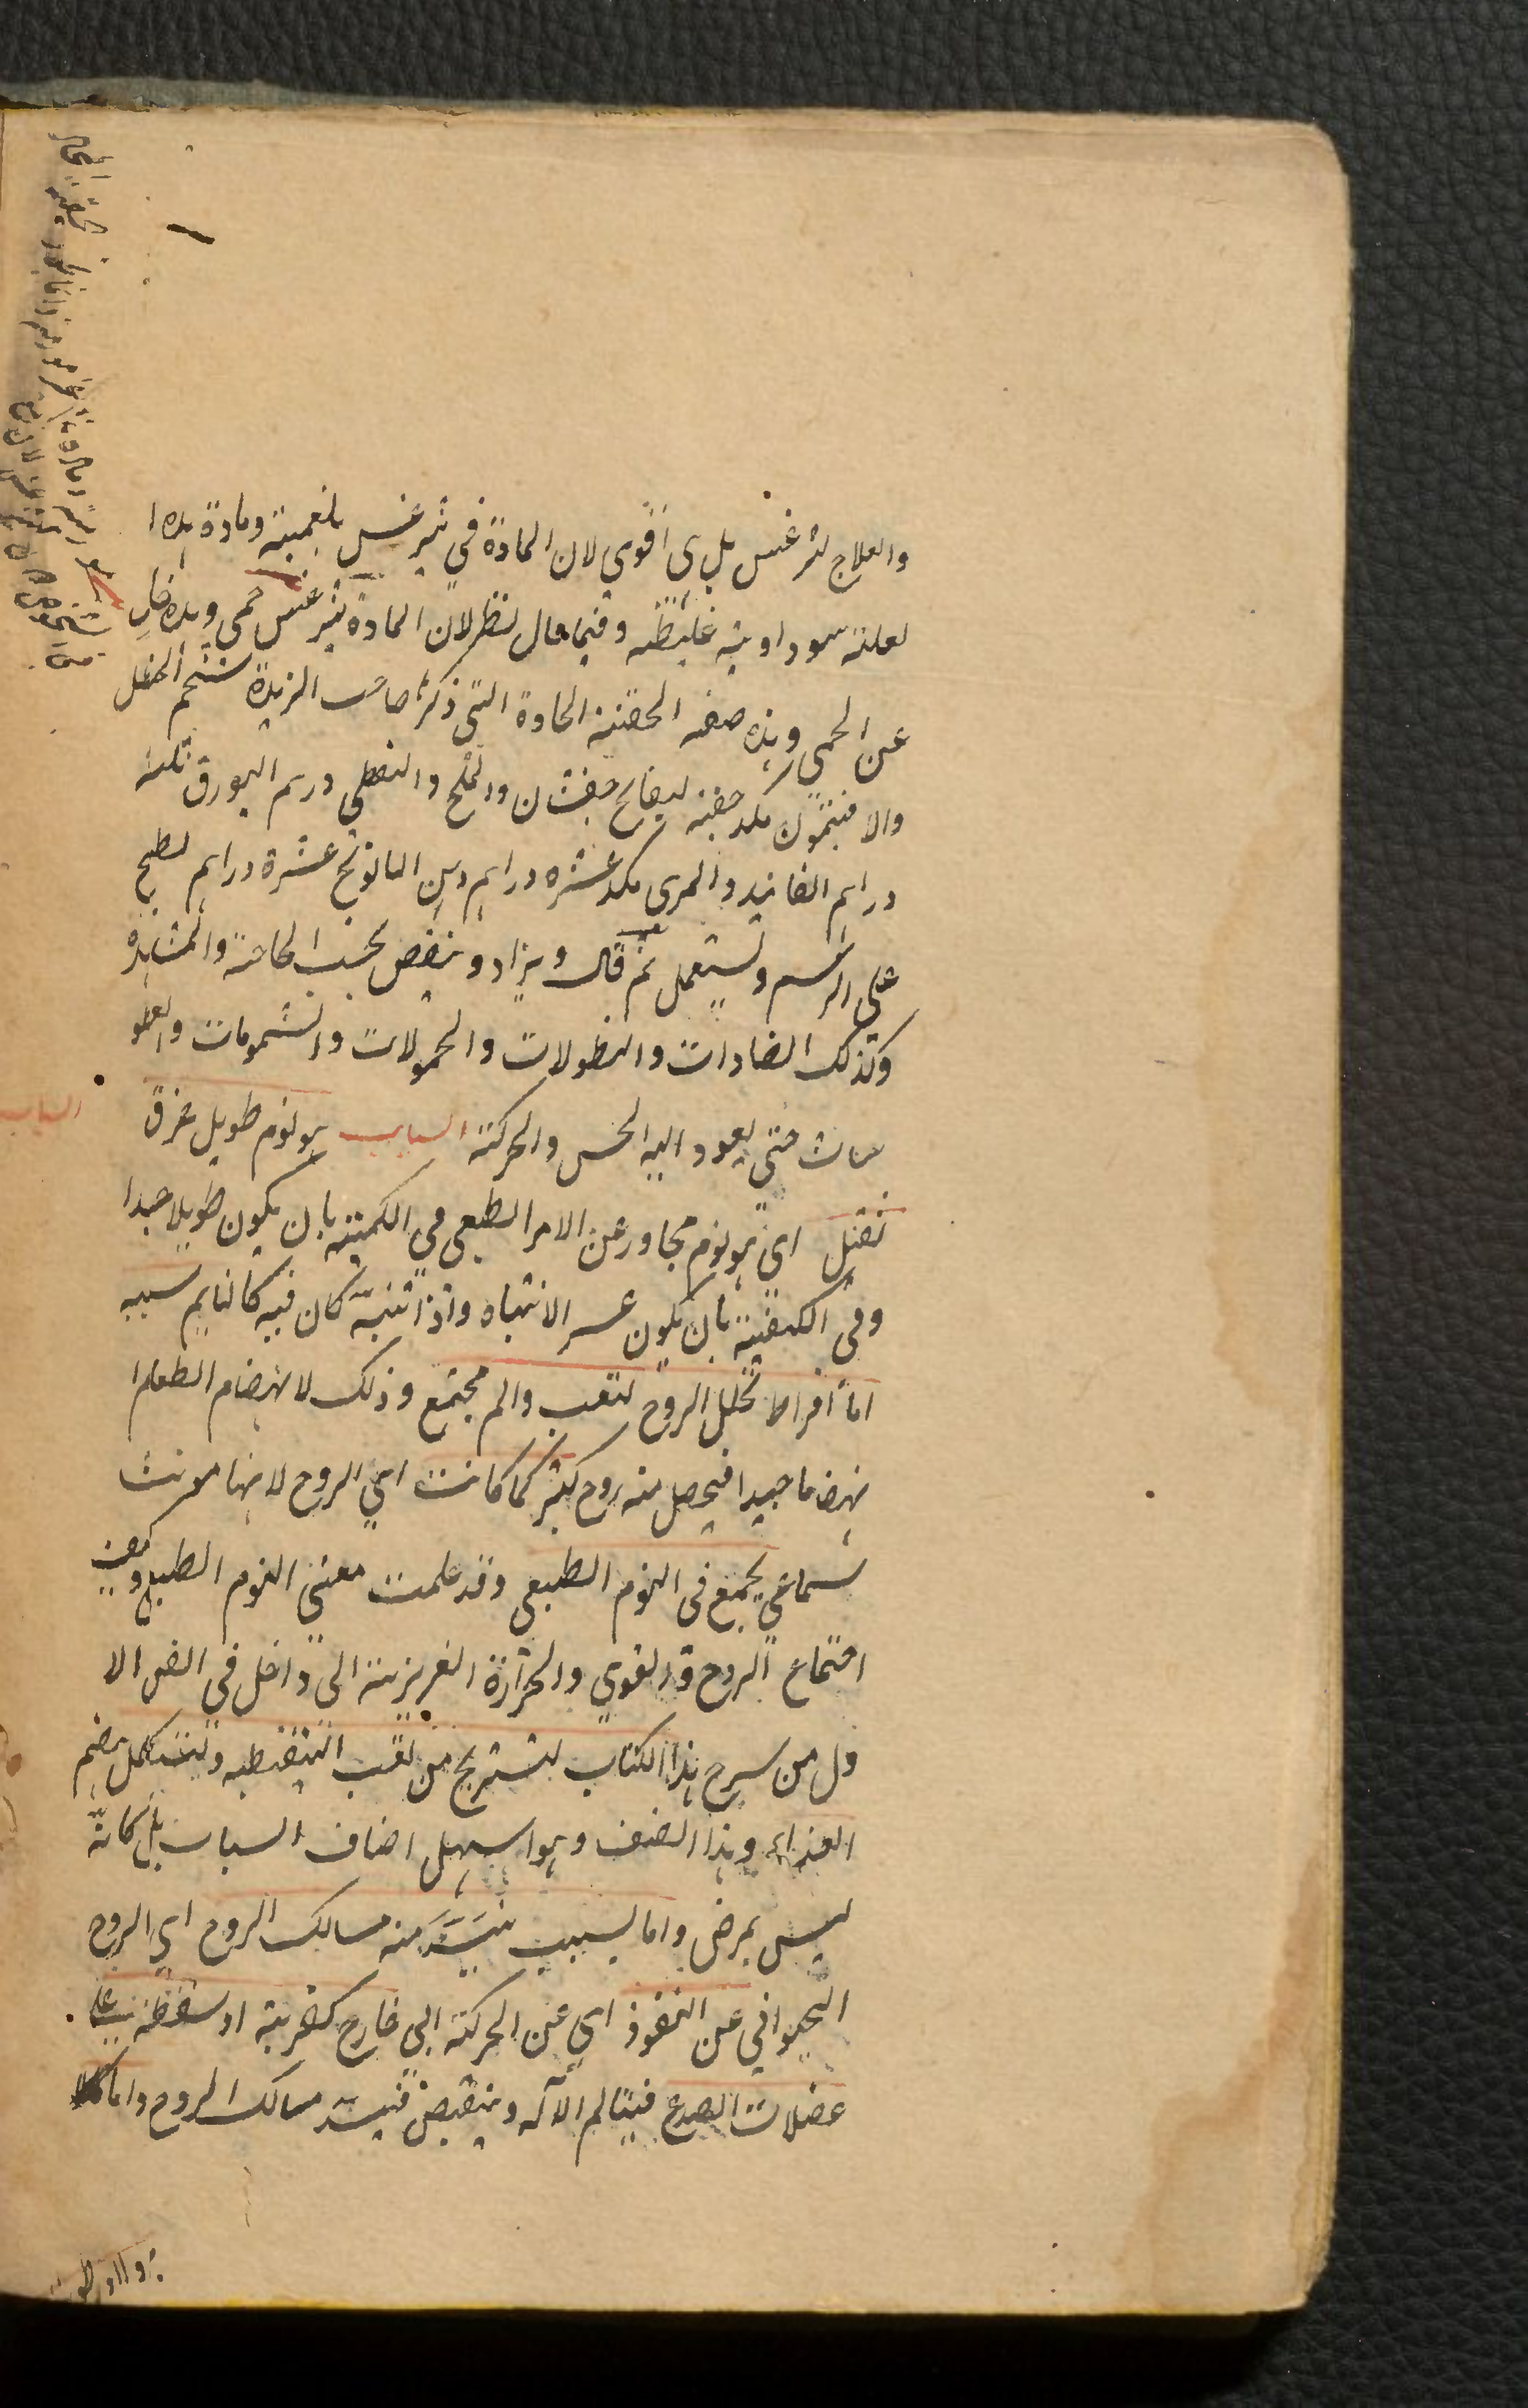 والعلاج لثرغس بل هى اقوي لان المادة في ليثرغس بلغمية ومادة هذه ا
لعلة سوداوية غليظه وفيما قال نظر لان المادة ليثرغس حمى وهذه خال
عن الحمي وهذه صفة الحقنة الحادة التى ذكرها صاحب الزبدة شحم الحنظل
والافتيمون مكد حفنه لسفايج حفنتان والملح والنفطى درهم البورق ثلثه
دراهم الفانيد والمرى مكد عشره دراهم دهن البابونج عشرة دراهم يطبخ
على الرسم ويستعمل ثم قال ويزاد وينقص بحسب الحاجة والمشاهده
وكذلك الضمادات والنطولات والحمولات والشمومات والعطو
سات حتى يعود اليه الحس والحركة السبات هو نوم طويل غرق
ثقيل اى هو نوم مجاوز عن الامر الطبعى في الكمية بان يكون طويلا جدا
وفى الكيفية بان يكون عسر الانتباه واذا تنبه كان فيه كالنايم سببه
اما افراط تحلل الروح لتعب والم مجتمع وذلك لانهضام الطعام ا
نهضاما جيدا فيحصل منه روح كثير كما كانت اي الروح لانها مونث
سماعي يجمع فى النوم الطبعى وقد علمت معنى النوم الطبيع ومعنى
اجتماع الروح والقوي والحرارة الغريزية الى داخل في الفن الا
ول من شرح هذا الكتاب لتستريح من تعب اليقظه وليستكمل هضم
الغذاء وهذا الصنف وهو اسهل اصناف السبات بل كانه
ليس بمرض واما لسبب ينسد منه مسالك الروح اي الروح
الحيواني عن النفوذ اي عن الحركة الى خارج كضربة او سقطة على
عضلات الصدغ فيتالم الآلة وينقبض فينسد مسالك الروح واما
السبات